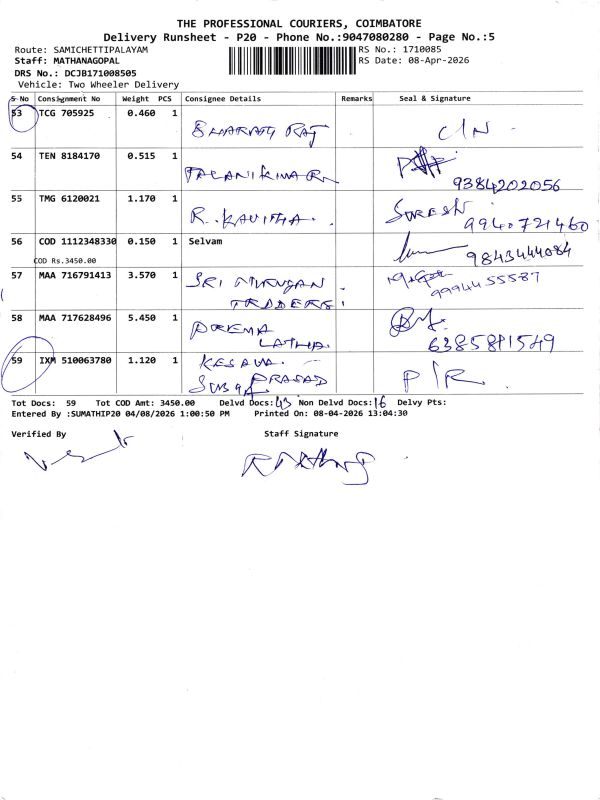 THE PROFESSIONAL COURIERS, COIMBATORE
Delivery Runsheet - P20 - Phone No.:9047080280 - Page No.:5
Route: SAMICHETTIPALAYAM RS No.: 1710085
Staff: MATHANAGOPAL RS Date: 08-Apr-2026
DRS No.: DCJB171008505
Vehicle: Two Wheeler Delivery
S No Consignment No Weight PCS Consignee Details Remarks Seal & Signature
53 TCG 705925 0.460 1 BHARATH RAJ C/N
54 TEN 8184170 0.515 1 9384202056
55 TMG 6120021 1.170 1 R. KAVITHA. SURESH 9940721460
56 COD 1112348330 0.150 1 Selvam 9843444084
COD Rs.3450.00
57 MAA 716791413 3.570 1 SRI MURUGAN 9994455587
TRADERS
58 MAA 717628496 5.450 1 PREMA
LATHA. 6385811549
59 IXM 510063780 1.120 1 KESAVA P/R
PRASAD
Tot Docs: 59 Tot COD Amt: 3450.00 Delvd Docs: 43 Non Delvd Docs: 16 Delvy Pts:
Entered By :SUMATHIP20 04/08/2026 1:00:50 PM Printed On: 08-04-2026 13:04:30
Verified By Staff Signature